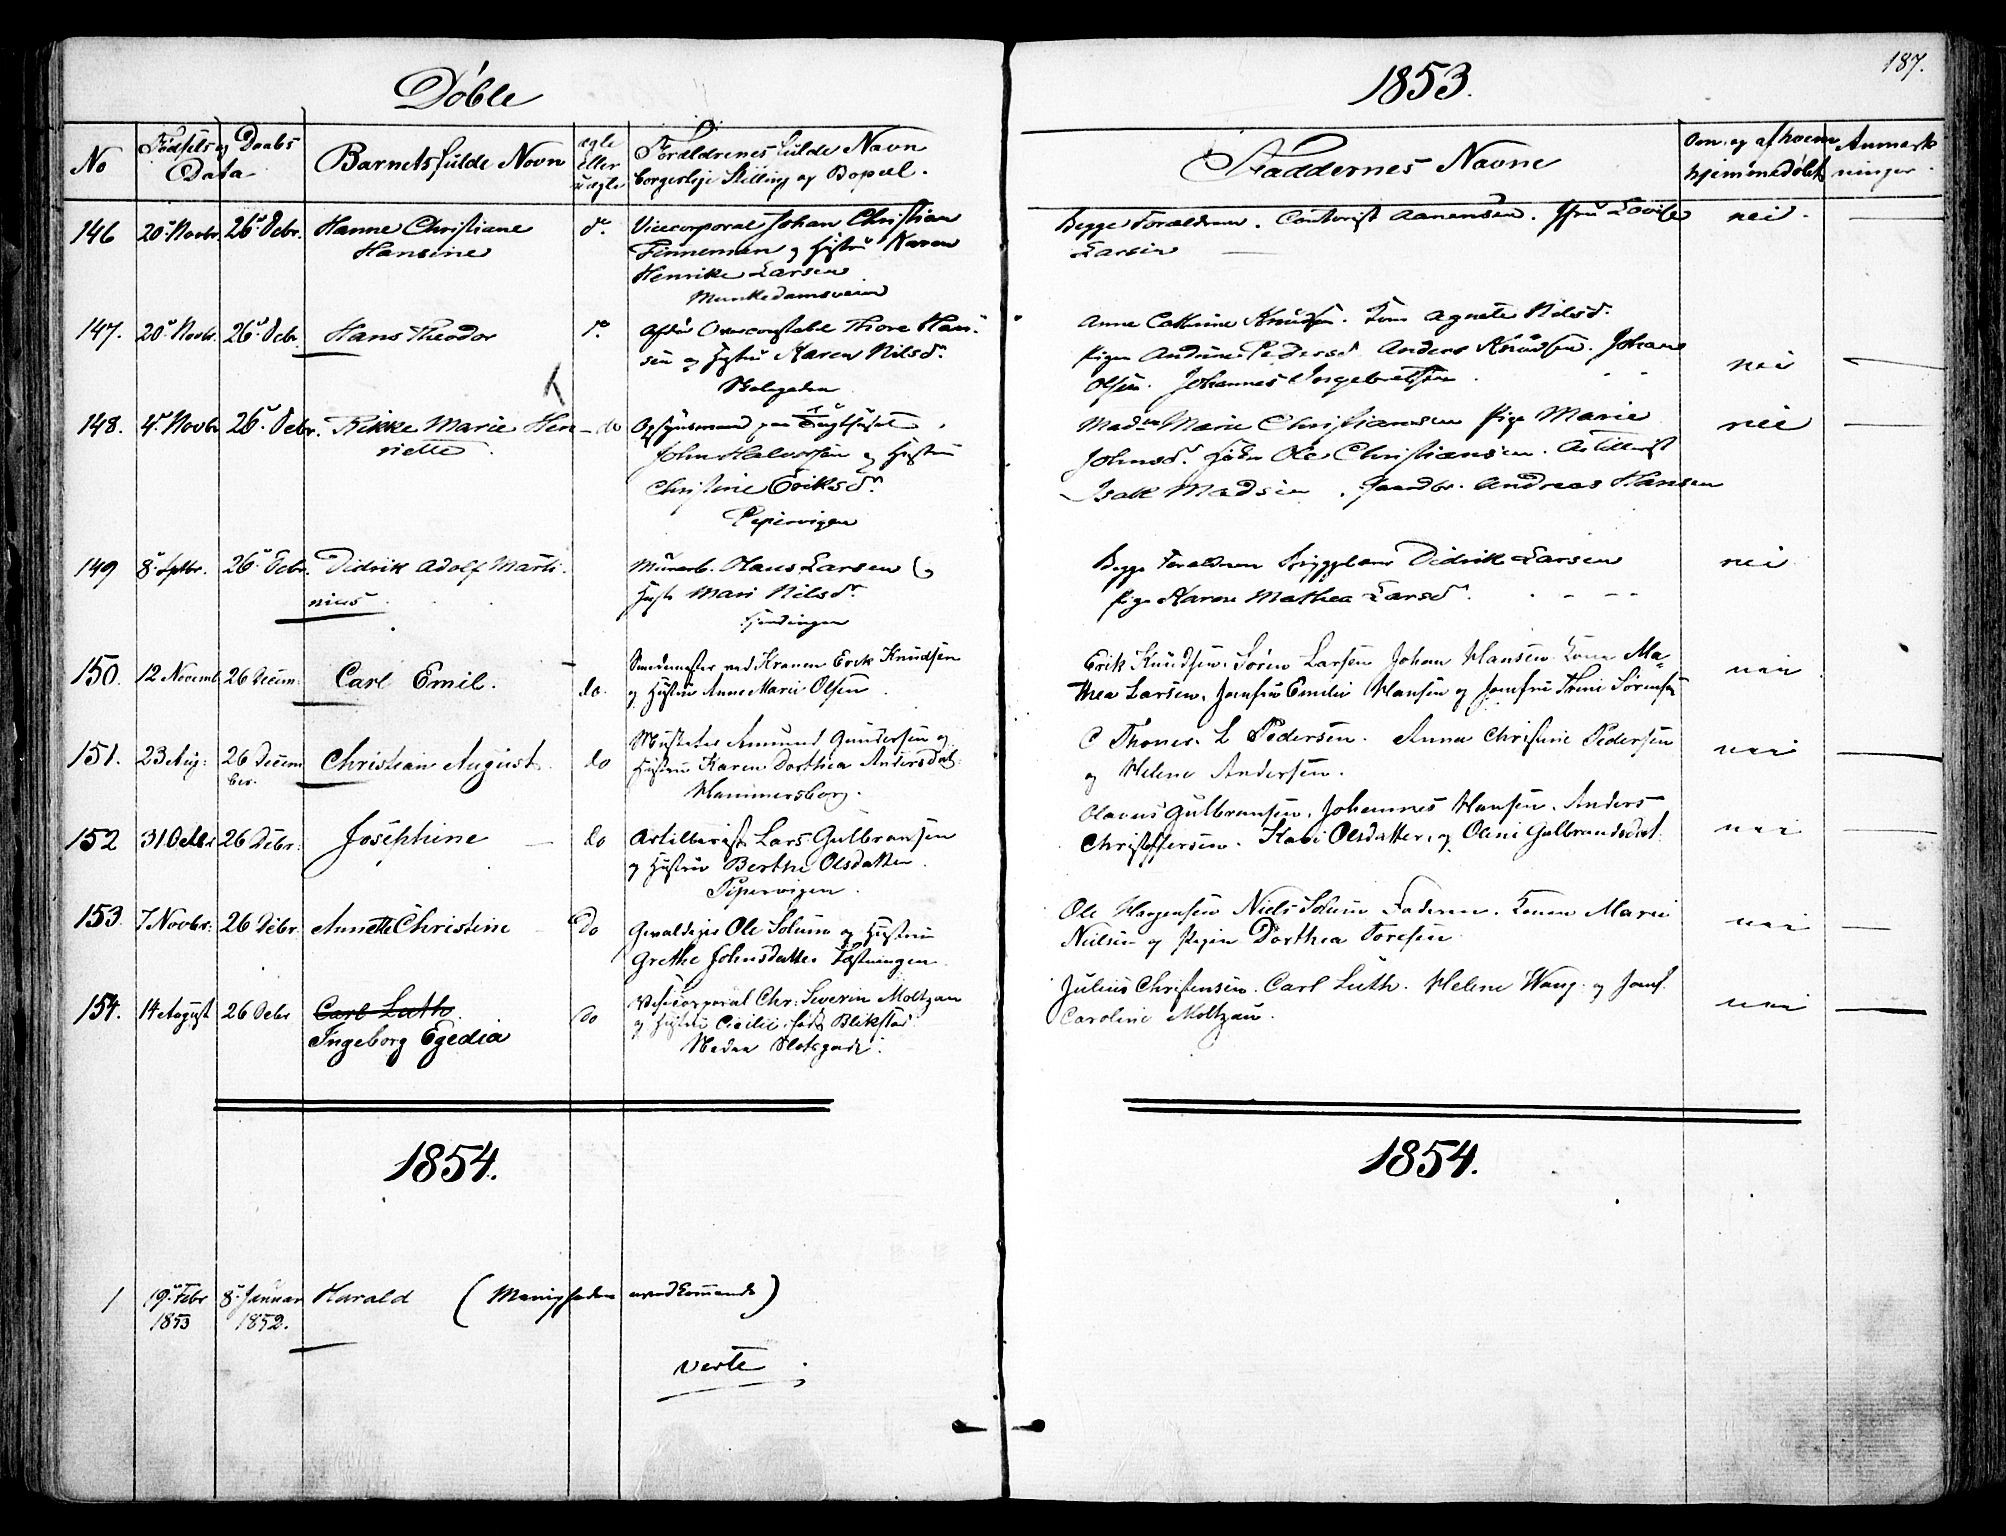 Døbte
1853.
187.
No
Fødsels og Daabs
Data
Barnets fulde Navn
ægte
eller
uægte
Forældrenes fulde Navn
borgerlige Stilling og Bopæl.
Faddernes Navne
Om og af hvem
hjemmedøbt
Anmærk
ninger.
146 20 Novbr. 26 Decbr. Hanne Christiane do Vicecorporal Johan Christian
Hansine Finneman og Hustru Karen
Henrike Larsen
Munkedamsveien
Begge Forældrene. Contorist Aanensen. Jfru Lovise nei.
Larsen
147. 20 Novbr. 26 Decbr. Hans Theodor do Overconstabel Thore Han
sen og Hustru Karen Nilsd.
Anne Cathrine Knudsen. Kone Agnete Nilsd.
Pigen Andrine Pedersd Anders Knudsen. Johan
Olsen. Johannes Ingebretsen. nei
148. 4 Novbr 26 Decbr. Rikke Marie Hen do Opsynsmand paa Tugthuset
riette. John Halvorsen og Hustru
Christine Eriksdr.
Pipervigen
Mad Marie Christiansen Pige Marie nei
Johnsd. Ole Christiansen. Artillerist
Isak Madsen. Andreas Hansen
149 8 Septbr. 26 Decbr. Didrik Adolf Marti
nius. Murarb. Hans Larsen og
Hustr Mari Nilsdr.
Begge Forældrene Didrik Larsen nei
Pige Karen Mathea Larsd.
150. 12 Novemb 26 Decem. Carl Emil. do. ved Kranen Erik Knudsen
og Hustru Anne Marie Olsen.
Erik Knudsen. Søren Larsen Johan Hansen Kone Ma-
thea Larsen. Jomfru Emilie Hansen og Jomfru Trine Sørensen nei
151. 23 Aug: 26 Decem
ber. Christian August. do Musketer Amund Gundersen og
Hustru Karen Dorthea Andersdat.
Hammersborg.
C Thoner. L Pedersen. Anna Christine Pedersen
og Helene Andersen. nei
152 31 Octbr 26 Debr. Josephine do Artillerist Lars Gulbransen
og Hustru Berthe Olsdatter.
Pipervigen.
Olavus Gulbransen. Johannes Hansen. Anders
Christoffersen. Kari Olsdatter. og Oline Gulbrandsdat. nei
153. 7 Novbr. 26 Debr. Annette Christine Do Gevaldiger Ole Solum og Hustru
Grethe Johnsdatter Fæstningen
Ole Haagensen Niels Solum Faderen. Konen Marie
Nielsen og Pigen Dorthea Toresen nei
154. 14 August 26 Debr Carl Luth. do Vicecorporal Chr: Severin Moltzau
Ingeborg Egedia og Hustru Cicilie født Blikstad.
Nedre Slotsgade.
Julius Christensen. Carl Luth. Helene Wang. og Jomf.
Caroline Moltzau. nei
1854.
1854.
1 19 Febr 8 Januar Harald (Menigheden uvedkommende)
1853 1852.
verte